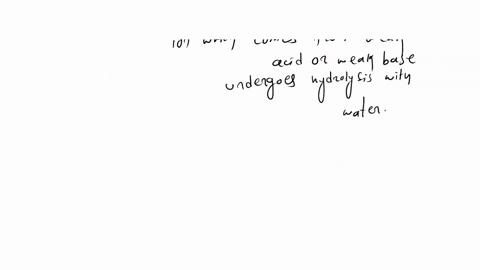 ion which comes from weak
acid or weak base
undergoes hydrolysis with
water.